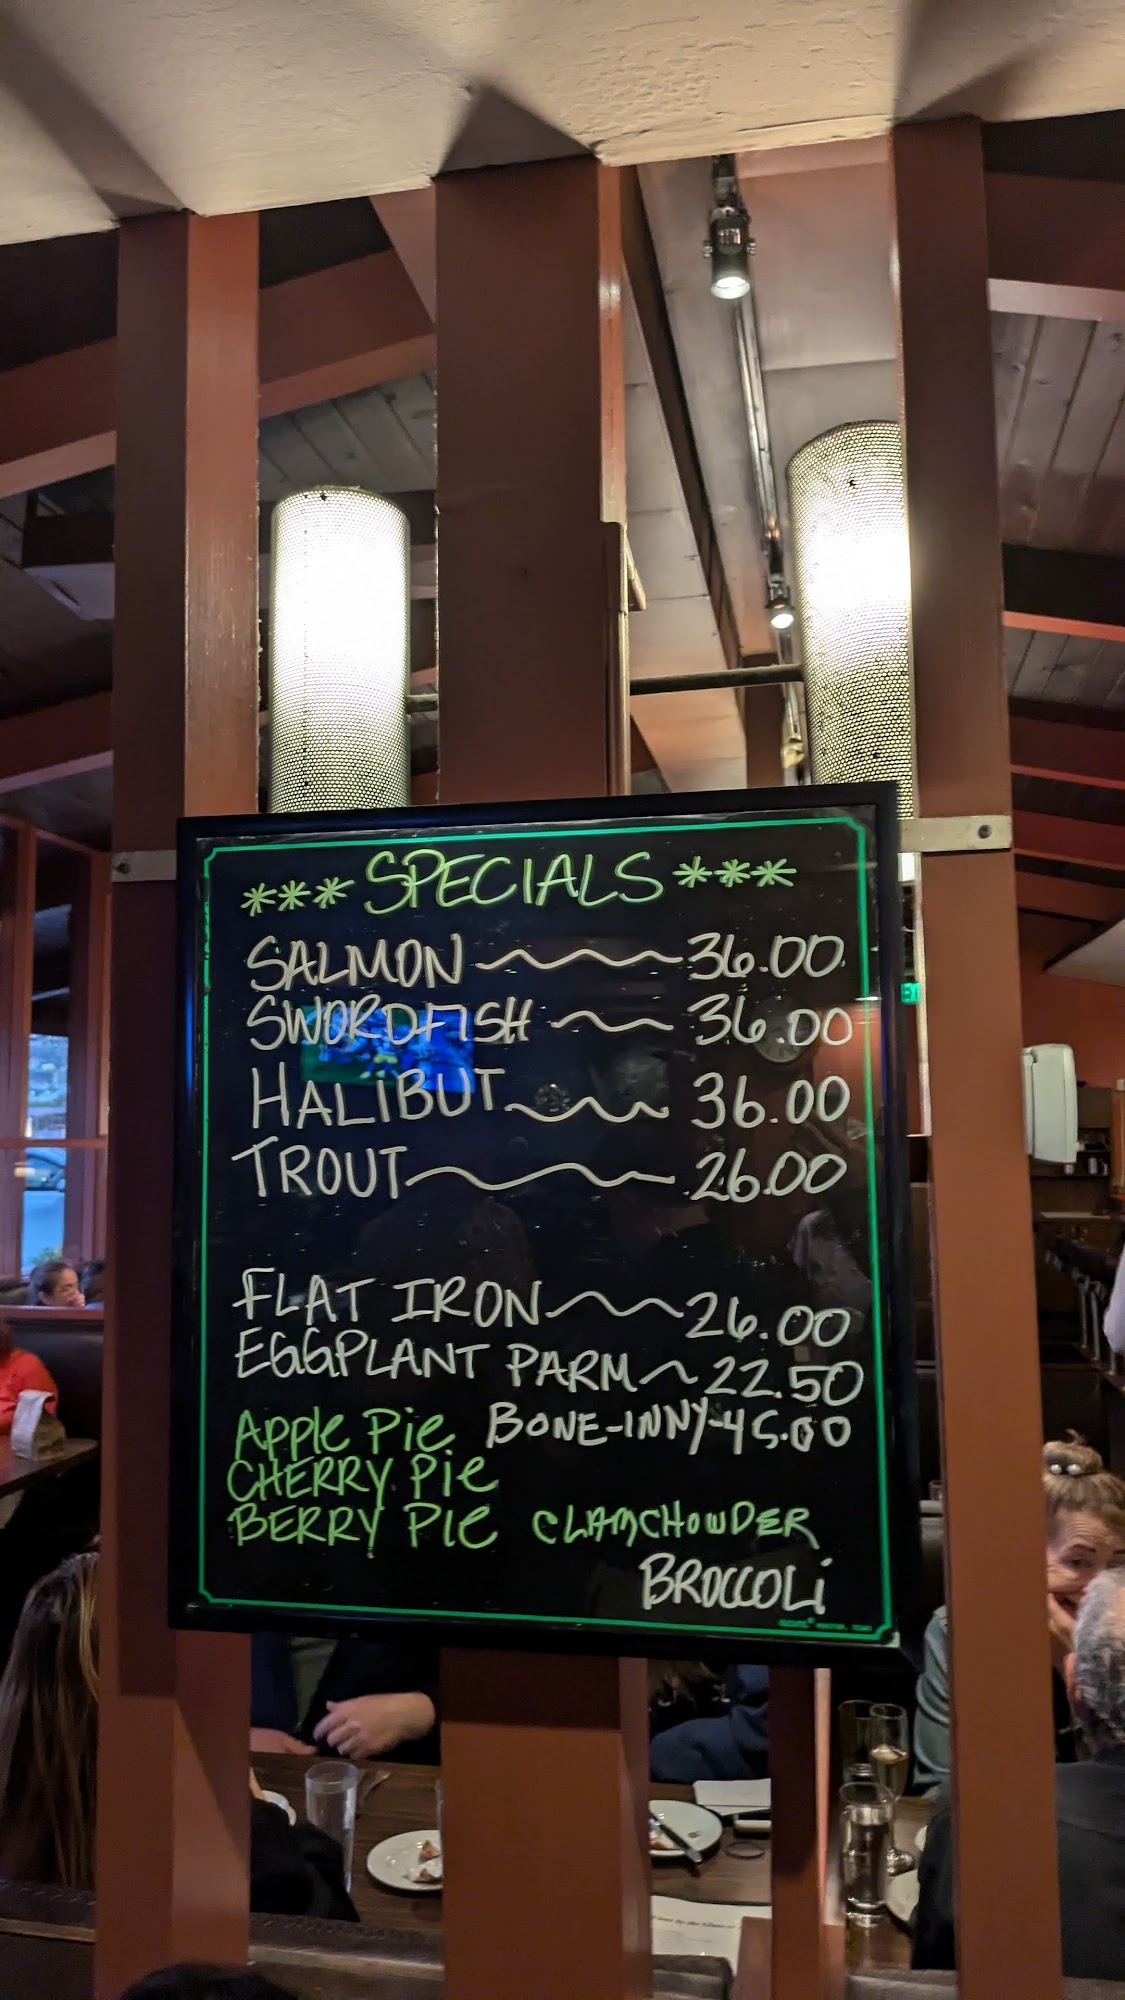 *** SPECIALS ***
SALMON 36.00
SWORDFISH 36.00
HALIBUT 36.00
TROUT 26.00
FLAT IRON 26.00
EGGPLANT PARM 22.50
Apple Pie BONE-INNY-45.00
CHERRY Pie
BERRY Pie CLAMCHOWDER
BROCCOLi
EXIT